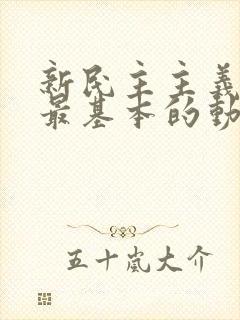 新民主主義
最基本的動
五十嵐大介